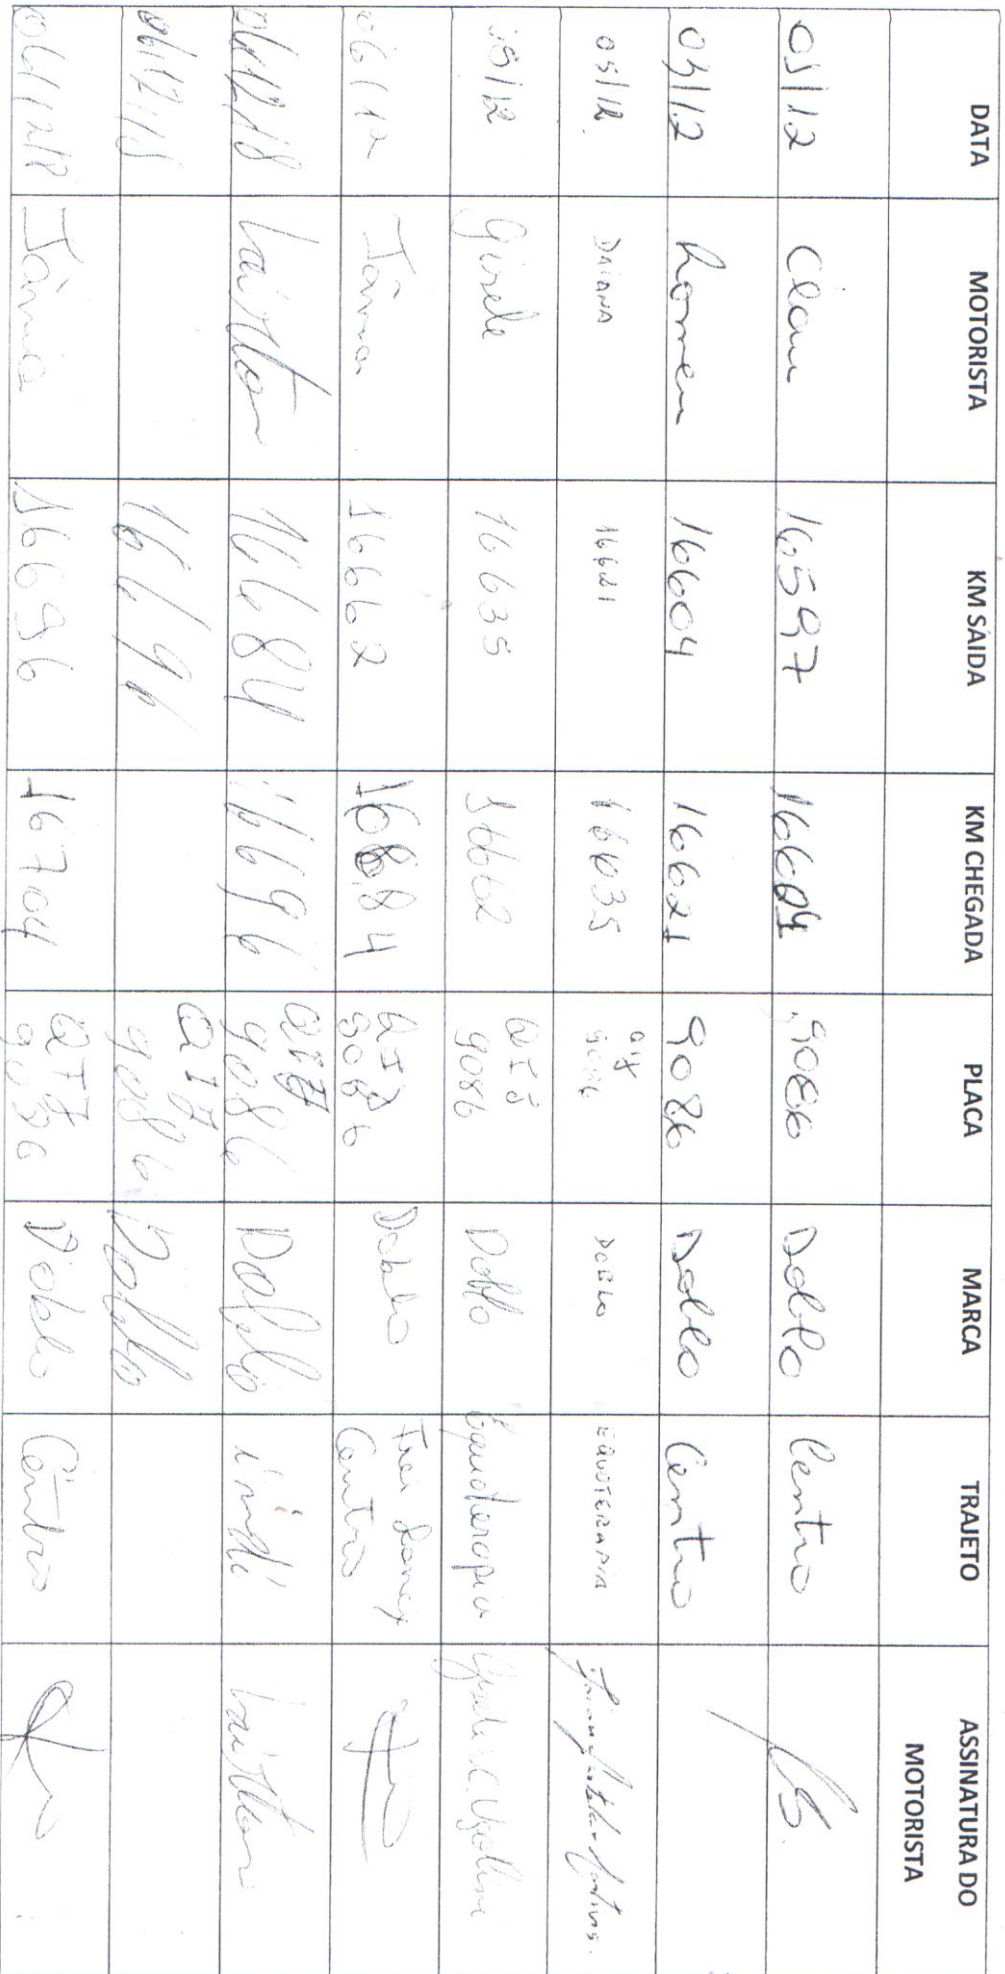 DATA MOTORISTA KM SAÍDA KM CHEGADA PLACA MARCA TRAJETO ASSINATURA DO MOTORISTA
05/12 Clau 16597 16604 9086 Doblo Centro
05/12 16604 16621 9086 Doblo Centro
05/12 DAIANA 16621 16635 QIJ 9086 DOBLO EQUOTERAPIA
05/12 Gisele 16635 16662 QIJ 9086 Doblo Equoterapia
06/12 Tânia 16662 16684 QIJ 9086 Doblo Centro
06/12/18 Lairton 16684 16696 QIJ 9086 Doblo Lairton
06/12/18 16696 QIJ 9086 Doblo
06/12/18 Tânia 16696 16704 QIJ 9086 Doblo Centro